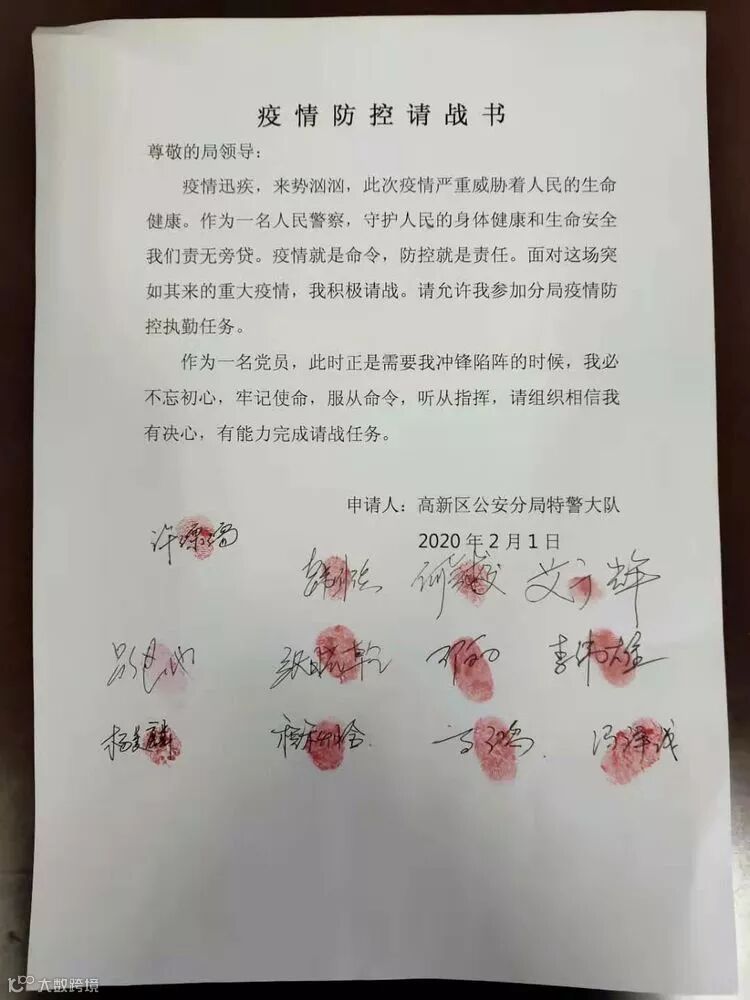 疫情防控请战书
尊敬的局领导：
疫情迅疾，来势汹汹，此次疫情严重威胁着人民的生命
健康。作为一名人民警察，守护人民的身体健康和生命安全
我们责无旁贷。疫情就是命令，防控就是责任。面对这场突
如其来的重大疫情，我积极请战。请允许我参加分局疫情防
控执勤任务。
作为一名党员，此时正是需要我冲锋陷阵的时候，我必
不忘初心，牢记使命，服从命令，听从指挥，请组织相信我
有决心，有能力完成请战任务。
申请人：高新区公安分局特警大队
2020年2月1日
大数跨境